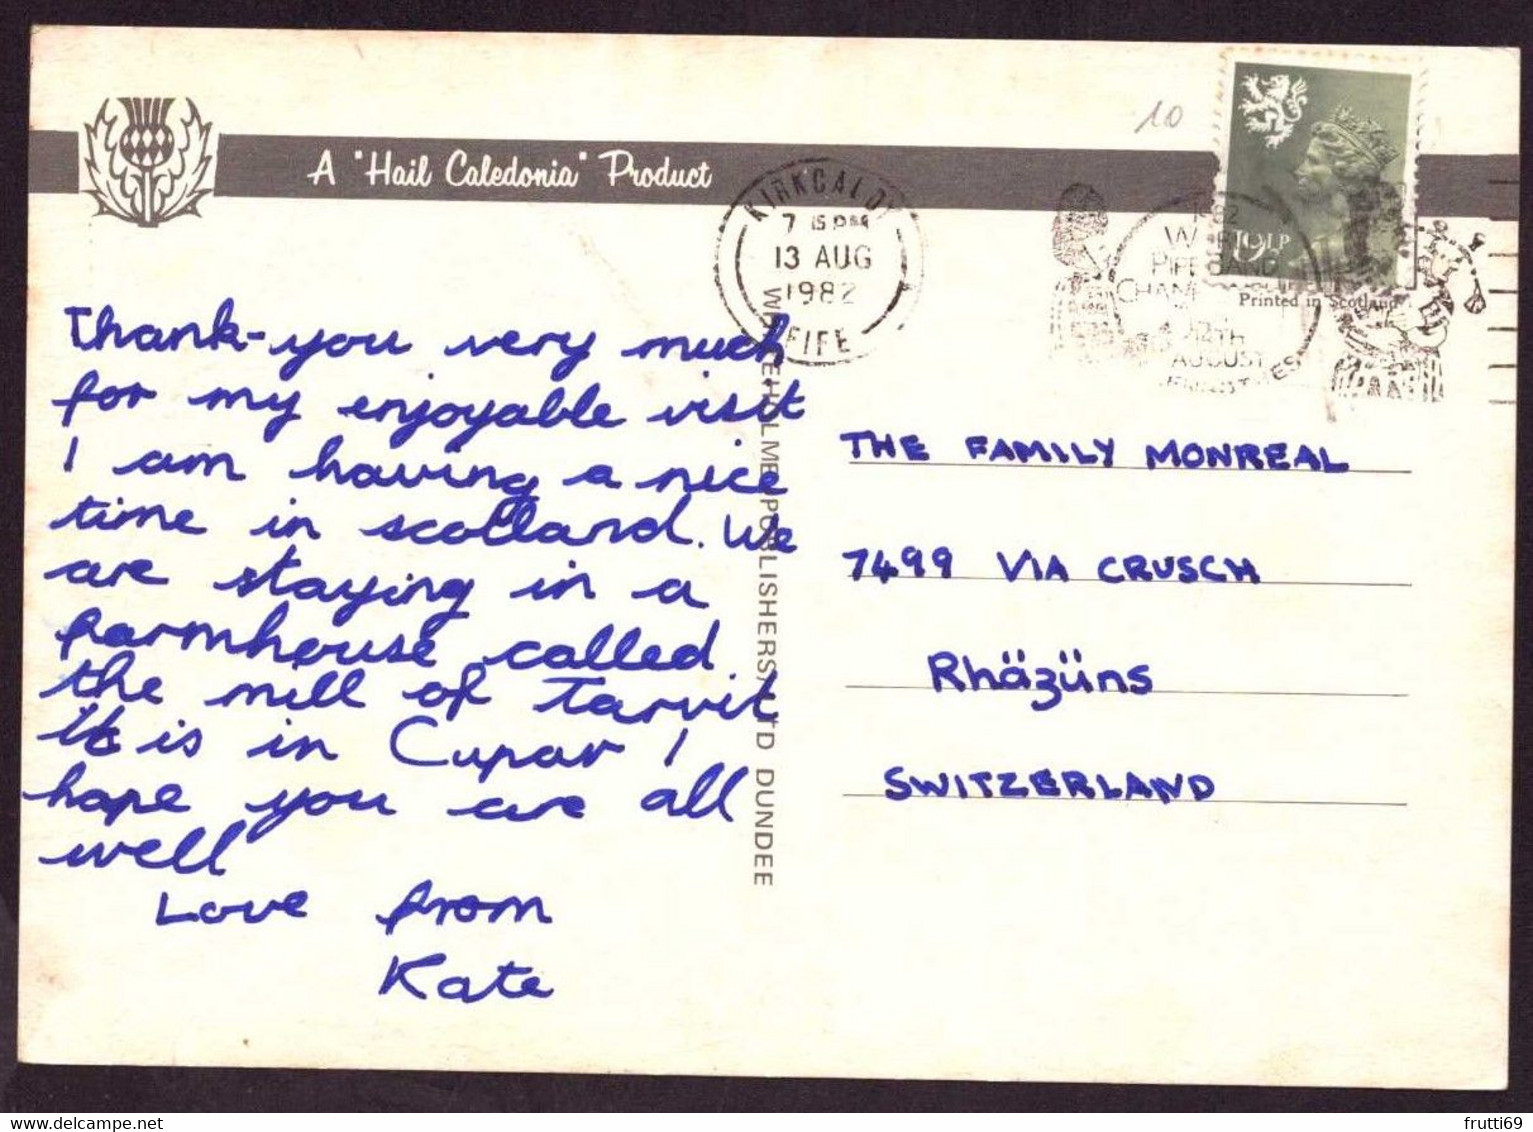 A "Hail Caledonia" Product
10
KIRKCALDY
7 15 PM
13 AUG
1982
FIFE
PIPE BAND
14TH
AUGUST
19½P
Printed in Scotland.
Thank-you very much
for my enjoyable visit
I am having a nice
time in scotland. We
are staying in a
farmhouse called
the mill of Tarvit
it is in Cupar I
hope you are all
well
Love from
Kate
WHITEHOLME PUBLISHERS LTD DUNDEE
THE FAMILY MONREAL
7499 VIA CRUSCH
Rhäzüns
SWITZERLAND
delcampe.net
frutti69